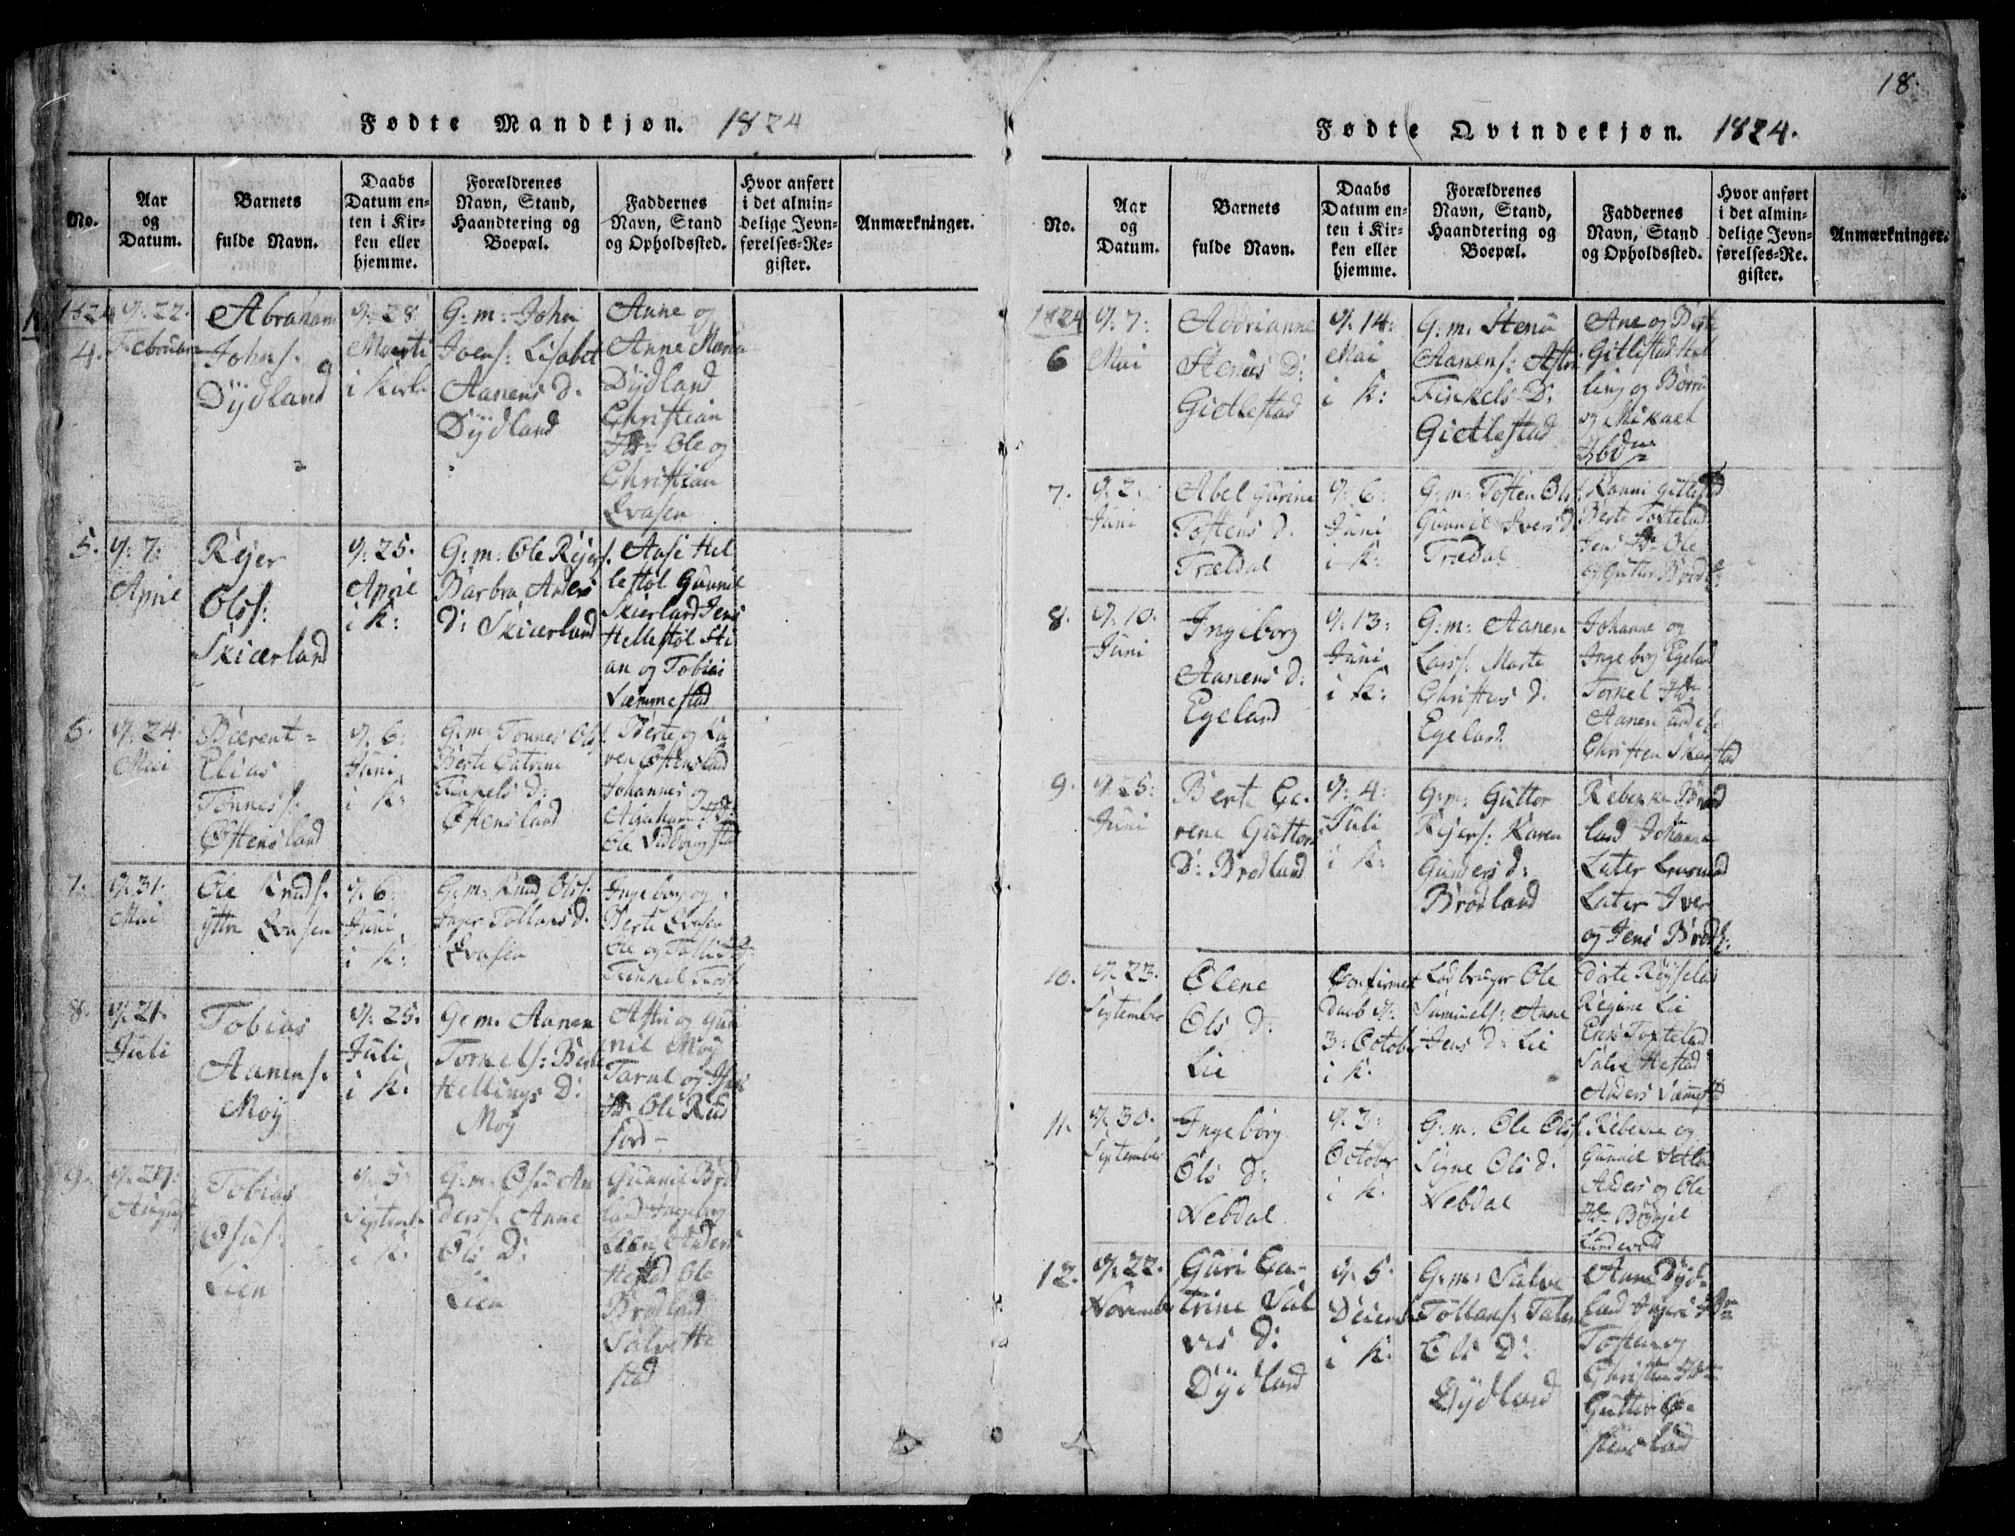 18.
Fødte Mandkjøn. 1824
No.
Aar
og
Datum.
Barnets
fulde Navn.
Daabs
Datum en-
ten i Kir-
ken eller
hjemme.
Forældrenes
Navn, Stand,
Haandtering og
Boepæl.
Faddernes
Navn, Stand
og Opholdssted.
Hvor anført
i det almin-
delige Jevn-
førelses-Re-
gister.
Anmærkninger.
1824
4.
22.
Februar
Abraham
Johns.
Dÿdland
28
Marti
i Kirke
G: m: John
Joens: Lisabet
Aanens d:
Dÿdland
Anne og
Anne Maria
Dÿdland
Christian
Ole og
Christian
Qvasen
5.
7:
April
Rejer
Ols:
Skierland
25.
April
i K:
G: m: Ole Rejers.
Barbra Anders
D: Skierland
Aase Hel
lestøl Gunnil
Skierland Jens
Hellestøl Sti
an og Tobias
Vamestad
6.
24.
Mai
Bærent
Elias
Tønnes:
Østensland
6.
Juni
i K:
G: m: Tønnes Ols.
Berte Catrine
Tønkels d:
Østensland
Berte og Ka
ren Østensland
Johannes og
Abraham
Ole
7.
31.
Mai
Ole Knuds.
ÿttre Qvasen
6.
Juni
i K:
G: m: Knud Ols:
Inger Tollans d.
Qvasen
Ingeborg og
Berte Qvasen
Ole og
8.
21.
Juli
Tobias
Aanens.
Moÿ
25.
Juli
i K:
G: m: Aanen
Torkels: Berte
Hellings D:
Moÿ
Astri og Gun
nil Moÿ
Taral og
Ole Rud
jord
9.
29.
August
Tobias
Osus:
Lien
5.
Septemb
i K:
G: m: Osus An
ders. Anne
Ols D:
Lien
Gunnil Brød
land Ingeborg
Lien Anders
Hestad Ole
Brødland
Salve He
stad
Fødte Qvindekjøn. 1824.
No.
Aar
og
Datum.
Barnets
fulde Navn.
Daabs
Datum en-
ten i Kir-
ken eller
hjemme.
Forældrenes
Navn, Stand,
Haandtering og
Boepæl.
Faddernes
Navn, Stand
og Opholdssted.
Hvor anført
i det almin-
delige Jevn-
førelses-Re-
gister.
Anmærkninger.
1824
6
7:
Mai
Addrianne
Stenus D:
Gietlestad
14:
Mai
i K:
G: m: Stenu
Aanens: Astri
Tinkels D:
Gietlestad
Ane og Berte
Gitlestad Hel
ling og
og Mikael
Ibdm
7.
2.
Juni
Abel Gurine
Tostens d.
Trældal
6.
Juni
i K:
G: m: Tosten Ols.
Gunnil Ivers d.
Trædal
Ranni Gitlestad
Berte Toxteland
Jens Ole
og Guttor
8.
10.
Juni
Ingeborg
Aanens d:
Egeland
13:
Juni
i K:
G: m: Aanen
Lars: Marte
Christens d.
Egeland
Johanne og
Ingeborg Egeland
Torkel
Aanen
Christen
9.
25.
Juni
Berte Ca-
rene Guttors
D: Brødland
4:
Juli
i K:
G: m: Guttor
Rejers: Karen
Gunders d:
Brødland
Rebekke Brød
land Johanna
Later
Later Iver
og Jens Brødl:
10.
23.
September
Olene
Ols d:
Lie
Confirmet
Daab
3: October
i K.
Ladbruger Ole
Samuels: Anne
Jens d: Lie
Dorte
Regine Lie
Erik Toxteland
Salve Hestad
Anders
11.
30.
September
Ingeborg
Ols D:
Nebdal
3:
October
i K.
G: m: Ole Ols.
Signe Ols d.
Nebdal
Rebekke og
Gunnil
Anders og Ole
12.
22.
November
Guri Ca-
trine Sal
ves D:
Dÿdland
5.
December
i K.
G: m: Salve
Tollans:
Ols D:
Dÿdland
Anne Dÿd-
land
Tosten og
Christen
Guttor Ø-
stensland